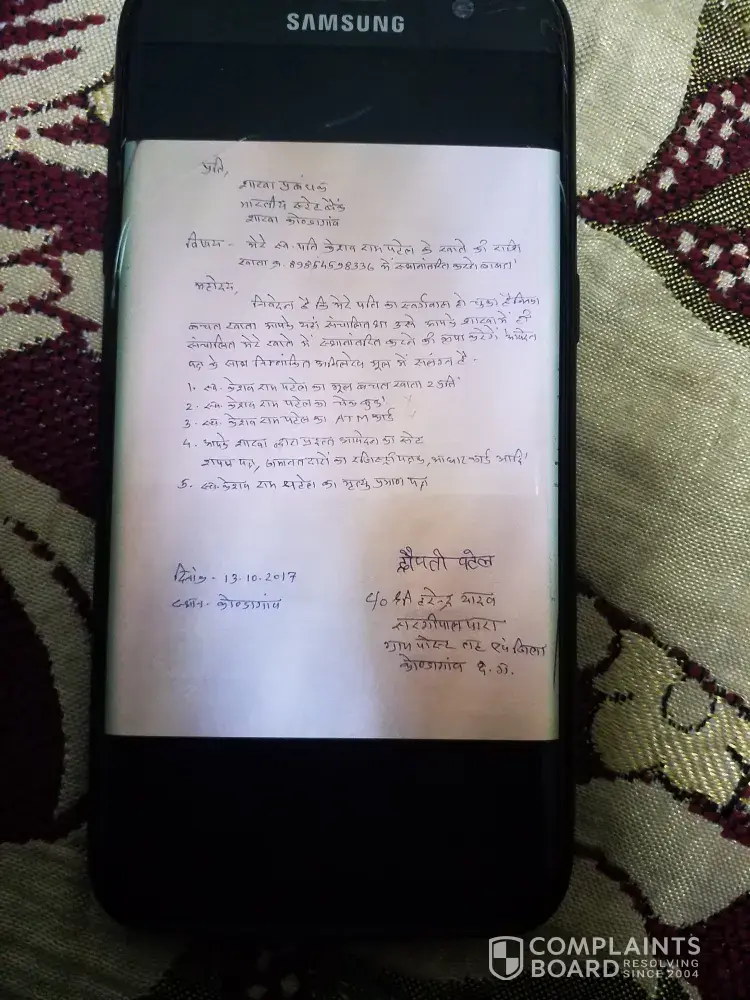 SAMSUNG
प्रति,
शाखा प्रबंधक
भारतीय स्टेट बैंक
शाखा कोण्डागांव
विषय - मेरे स्व. पति केशव राम पटेल के खाते की राशि
खाता क्र. में स्थानांतरित करने बाबत।
महोदय,
निवेदन है कि मेरे पति का स्वर्गवास हो चुका है जिनका
बचत खाता आपके यहां संचालित था उसे आपके शाखा में ही
संचालित मेरे खाते में स्थानांतरित करने की कृपा करेंगे। आवेदन
पत्र के साथ निम्नांकित अभिलेख मूल में संलग्न है -
1. स्व. केशव राम पटेल का मूल बचत खाता 2 प्रति
2. स्व. केशव राम पटेल का चेक बुक
3. स्व. केशव राम पटेल का ATM कार्ड
4. आपके शाखा द्वारा प्रदत्त आवेदन का सेट
शपथ पत्र, जमानतदारों का पत्रक, आधार कार्ड आदि।
5. स्व. केशव राम पटेल का मृत्यु प्रमाण पत्र
दिनांक - 13.10.2017
स्थान - कोण्डागांव
द्रौपती पटेल
C/o हरेन्द्र यादव
सरगीपाल पारा
ग्राम पोस्ट तह एवं जिला
कोण्डागांव छ. ग.
COMPLAINTS
BOARD RESOLVING SINCE 2004